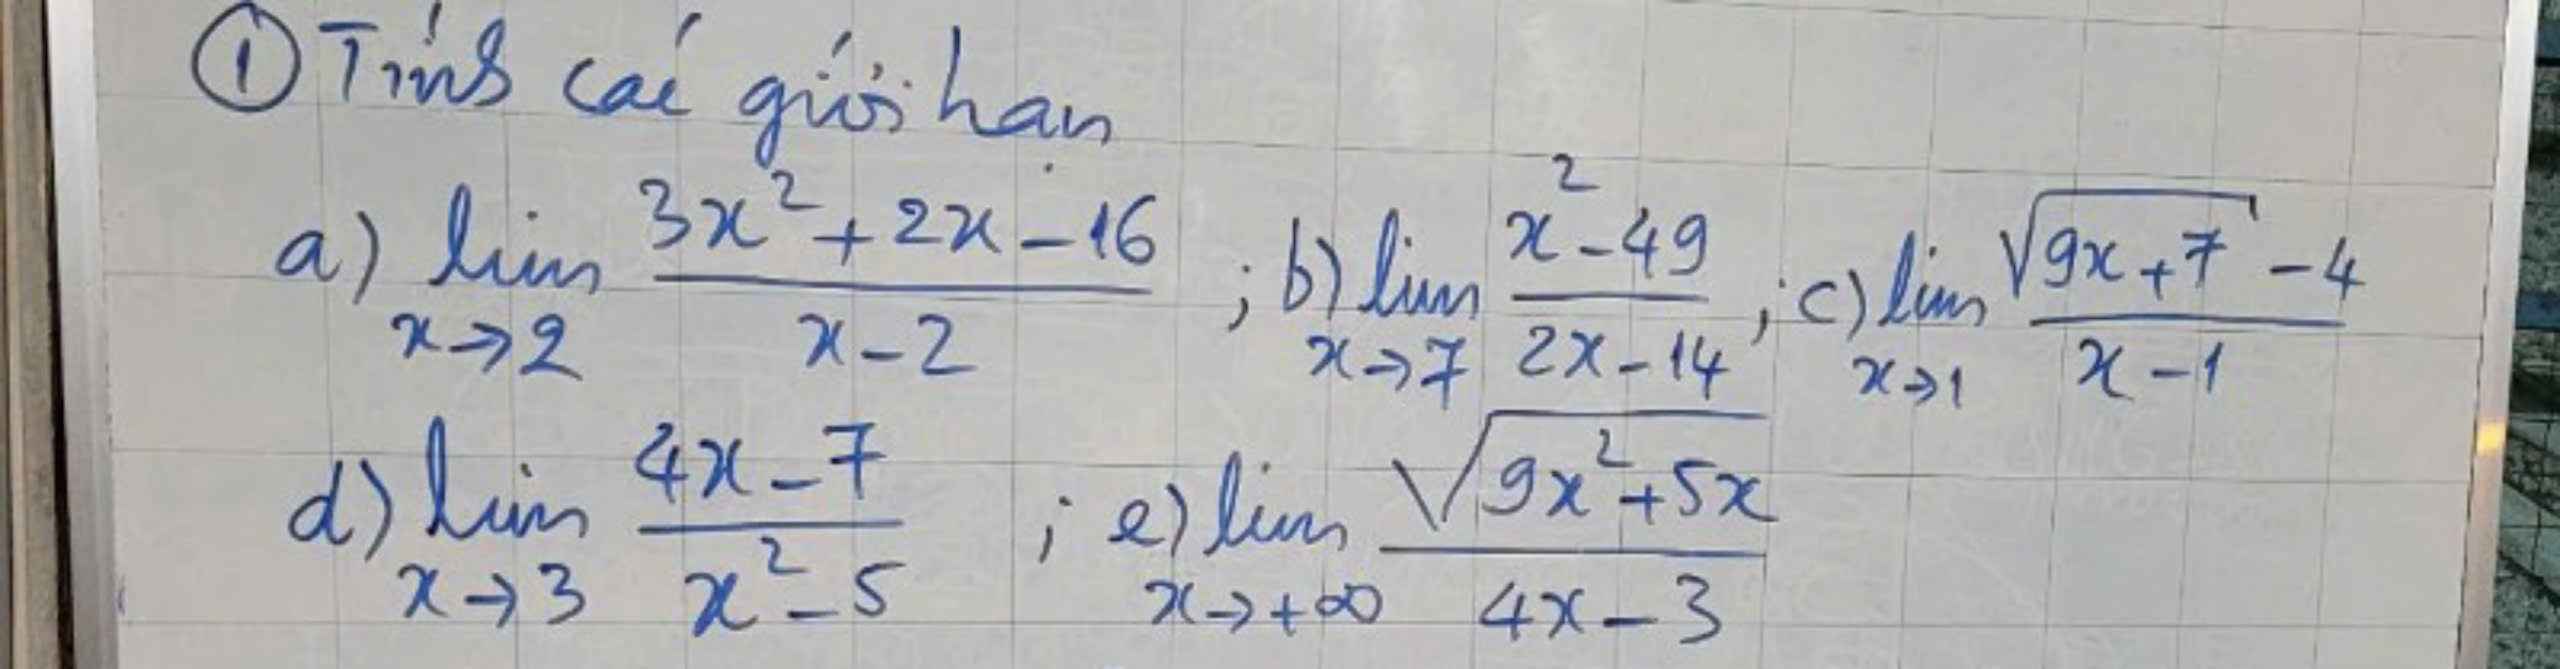 ① Tính các giới hạn
a) lim x→2 (3x² + 2x - 16)/(x - 2) ; b) lim x→7 (x² - 49)/(2x - 14) ; c) lim x→1 (√(9x + 7) - 4)/(x - 1)
d) lim x→3 (4x - 7)/(x² - 5) ; e) lim x→+∞ √(9x² + 5x)/(4x - 3)